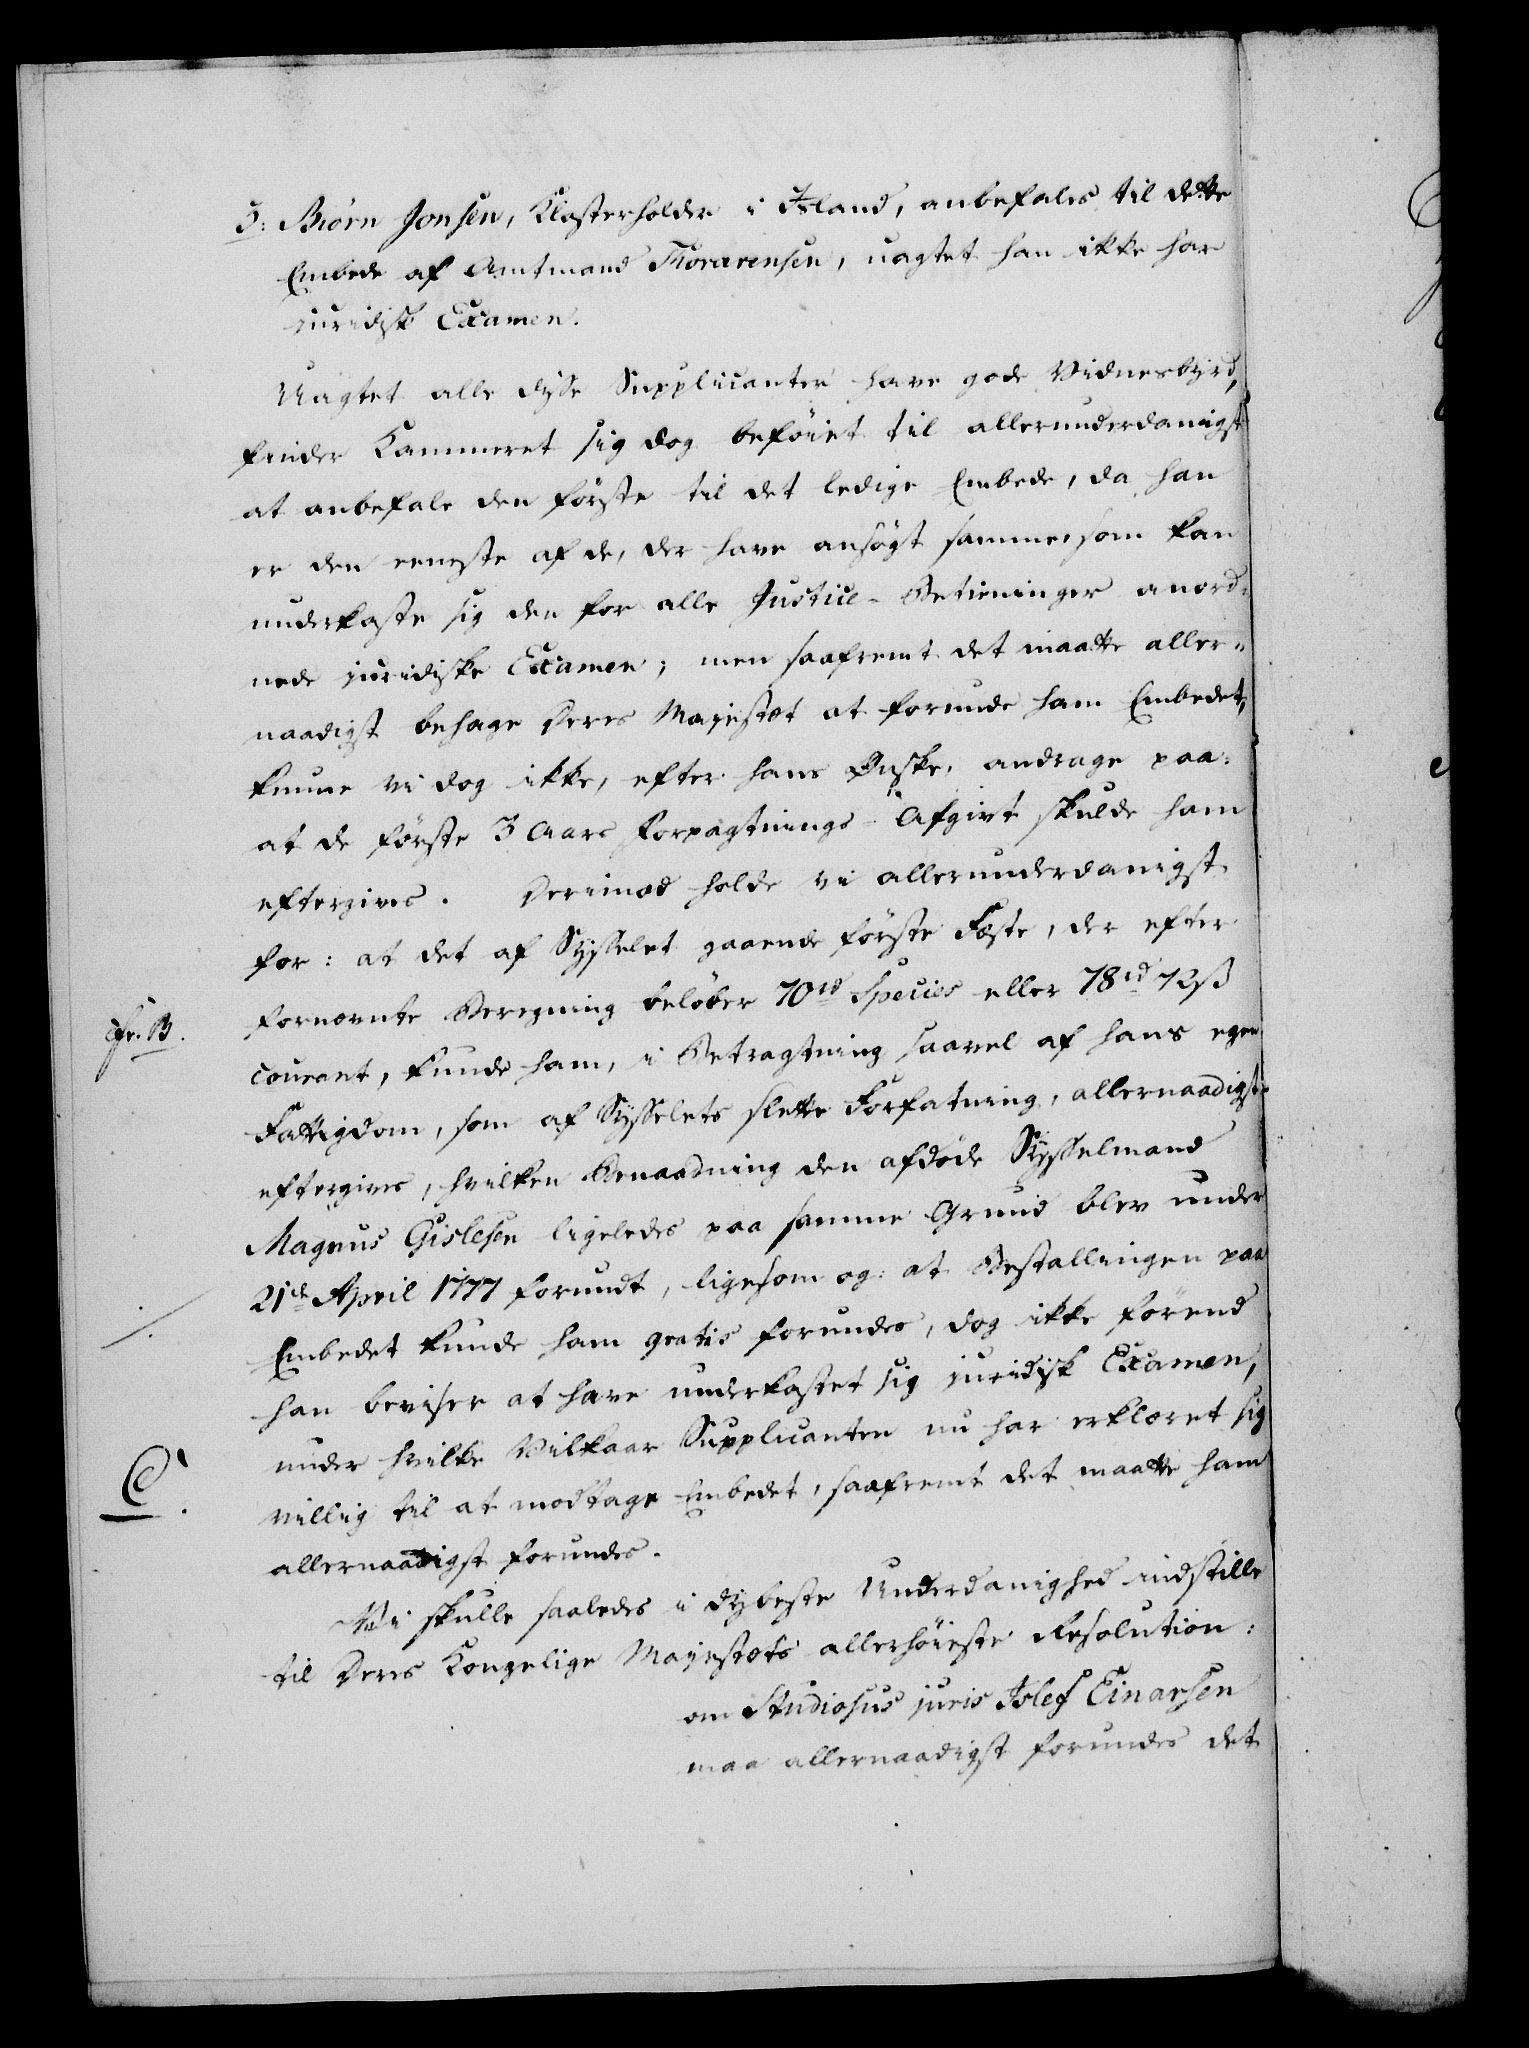 5: Biørn Jonsen, Klosterholder i Island, anbefales til dette
Embede af Amtmand Thorarensen, uagtet han ikke har
juridisk Examen.
Uagtet alle disse Supplicanter have gode Vidnesbyrd,
finder Kammeret sig dog beføiet til allerunderdanigst
at anbefale den første til det ledige Embede, da han
er den eeneste af de, der have ansøgt samme, som kan
underkaste sig den for alle Justice-Betieninger anord-
nede juridiske Examen; men saafremt det maatte aller-
naadigst behage Deres Majestæt at forunde ham Embedet,
kunne vi dog ikke, efter hans Ønske, andrage paa:
at de første 3 Aars Forpagtnings-Afgivt skulde ham
eftergives. Derimod holde vi allerunderdanigst
for: at det af Sysselet gaaende første Fæste, der efter
cfr. B.
fornævnte Beregning beløber 70rd Species eller 78rd 72ß
courant, kunde ham, i Betragtning saavel af hans egen
Fattigdom, som af Sysselets slette Forfatning, allernaadigst
eftergives, hvilken Benaadning den afdøde Sysselmand
Magnus Gislesen ligeledes paa samme Grund blev under
21de April 1777 forundt, ligesom og: at Bestallingen paa
Embedet kunde ham gratis forundes, dog ikke førend
han beviser at have underkastet sig juridisk Examen,
under hvilke Vilkaar Supplicanten nu har erklæret sig
C.
villig til at modtage Embedet, saafremt det maatte ham
allernaadigst forundes.
Vi skulle saaledes i dybeste Underdanighed indstille
til Deres Kongelige Majestæts allerhøieste Resolution:
om Studiosus juris Islef Einarsen
maa allernaadigst forundes det